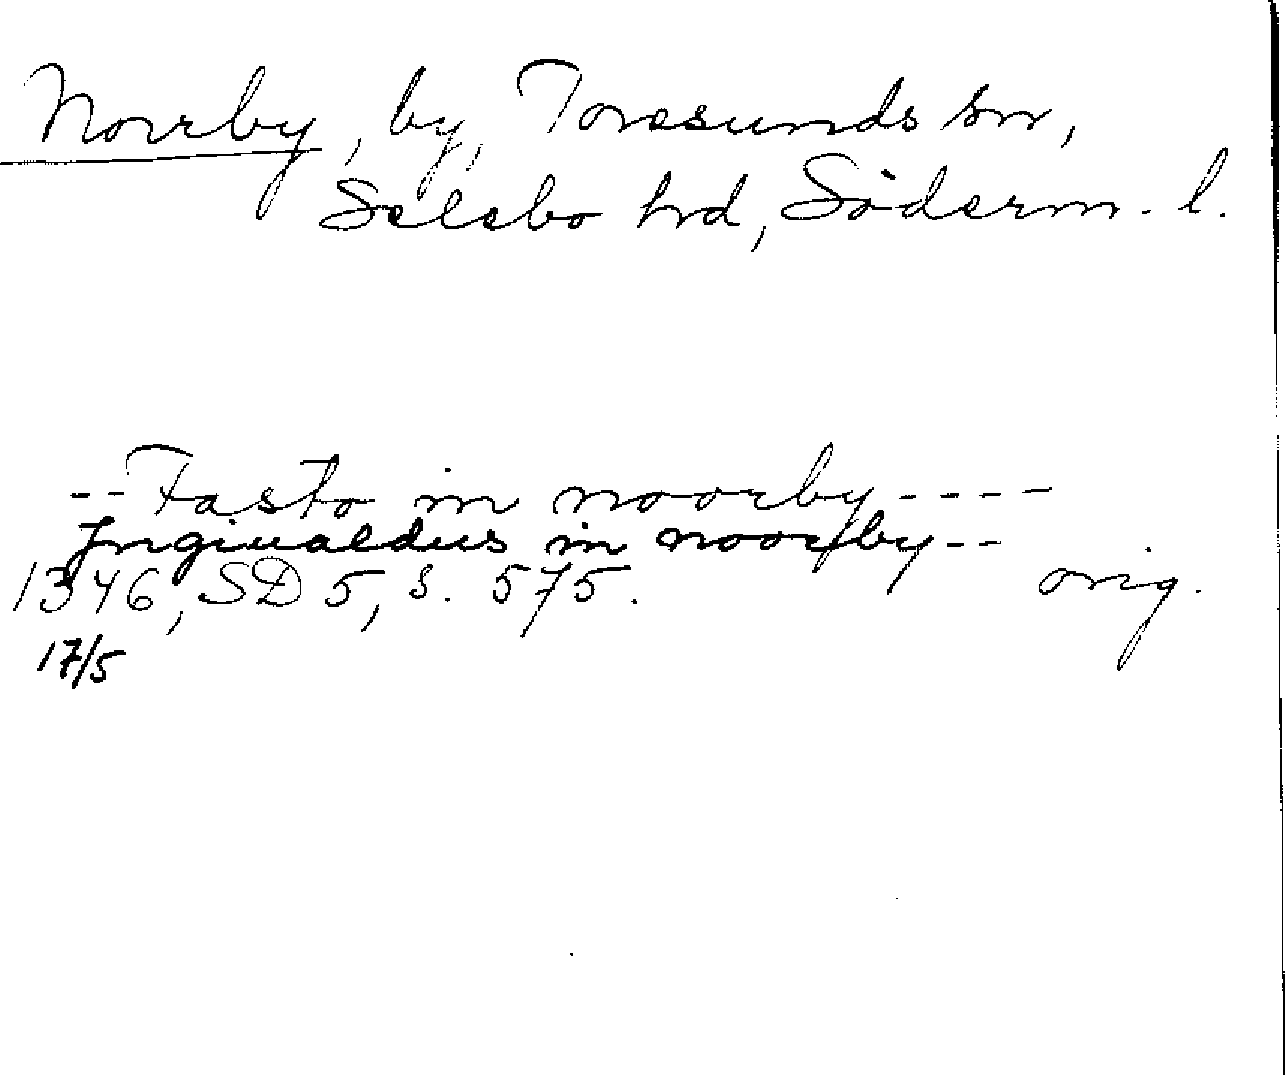 Norrby, by, Toresunds sn,
Selebo hrd, Söderm. l.
-- Fasto in noorby ----
Ingiualdus in noorby --
1346, SD 5, s. 575. orig.
17/5